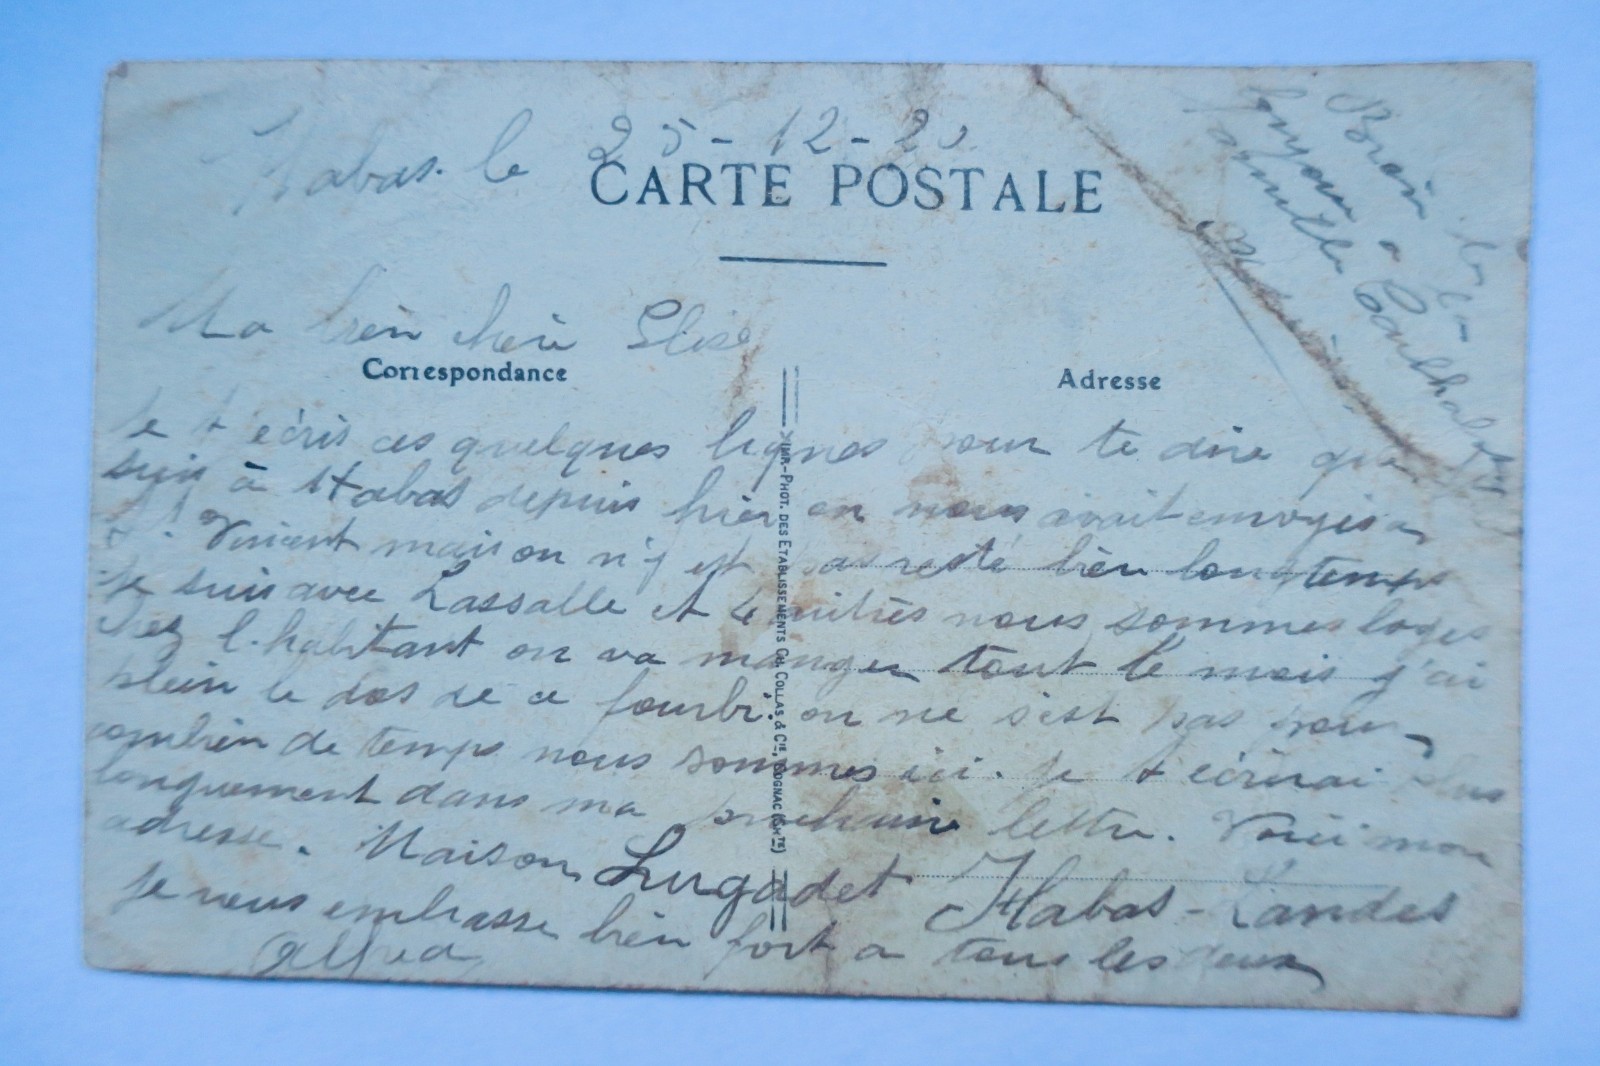 Habas. le 25-12-20
CARTE POSTALE
Ma bien chère Elise
Correspondance
Adresse
Je t'écris ces quelques lignes pour te dire que
suis à Habas depuis hier on nous avait envoyés a
St Vincent mais on n'y est pas resté bien longtemps
je suis avec Lassalle et nous sommes logés
chez l'habitant on va manger tout le mois j'ai
plein le dos de ce fourbi. on ne sest pas pour
combien de temps nous sommes ici. Je t'écrirai plus
longuement dans ma prochaine lettre. Voici mon
adresse. Maison Lugadet Habas - Landes
je vous embrasse bien fort a tous les deux
Alfred
IMP.-PHOT. DES ETABLISSEMENTS CH. COLLAS & CIE, COGNAC (CHTE)
Bien le
bonjour a la
famille